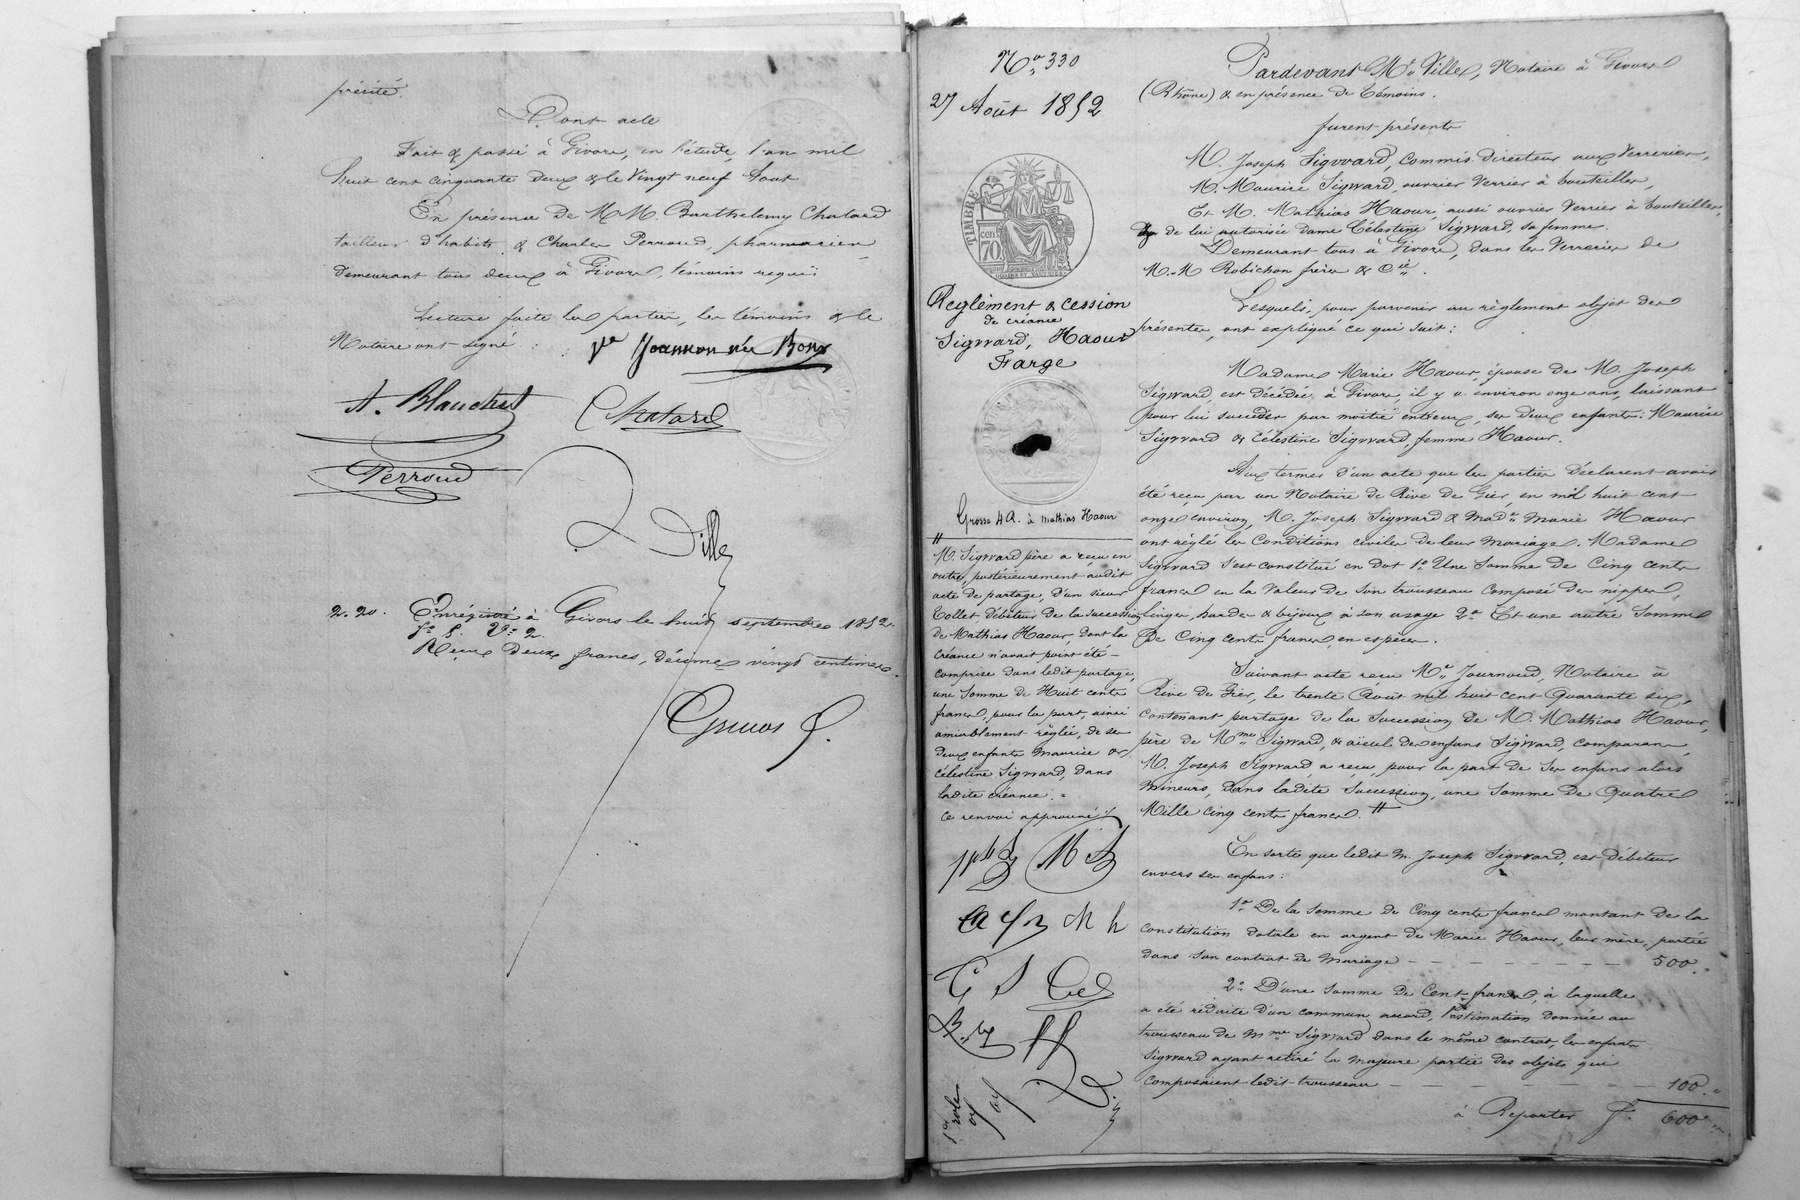 précité.
Dont acte
Fait & passé à Givors, en l'étude, l'an mil
huit cent cinquante deux & le vingt neuf Aout
En présence de M.M. Barthelemy Chatard
tailleur d'habits, & Charles Perroud, pharmacien
demeurant tous deux à Givors, témoins requis
Lecture faite les parties, les témoins & le
Notaire ont signé :
Ve Joannon née
A. Blanchet
Chatard
Perroud
Ville
2.20. Enrégistré à Givors le huit septembre 1852.
fo Vo 2.
Reçu deux francs, décime vingt centimes.
No 330
27 Août 1852
TIMBRE
70
Reglément & cession
de créance
Sigward, Haour
Farge
Grosse 4 R. à Mathias Haour
M. Sigward père a reçu en
outre, postérieurement audit
acte de partage, d'un sieur
Collet débiteur de la succession
de Mathias Haour, dont la
créance n'avait point été
comprise dans ledit partage,
une somme de Huit cents
francs, pour la part, ainsi
amiablement réglée, de ses
deux enfants Maurice &
Célestine Sigward, dans
ladite créance.
Ce renvoi approuvé
M S
M h
1er role
Pardevant Me Ville, Notaire à Givors
(Rhône) & en présence de témoins.
furent présents
M. Joseph Sigward, commis directeur aux Verreries,
M. Maurice Sigward, ouvrier verrier à bouteilles,
Et M. Mathias Haour, aussi ouvrier verrier à bouteilles,
& de lui autorisée dame Célestine Sigward, sa femme.
Demeurant tous à Givors, dans les Verreries de
M.M Robichon frères & Cie.
Lesquels, pour parvenir au règlement objet des
présentes, ont expliqué ce qui suit :
Madame Marie Haour, épouse de M. Joseph
Sigward, est décédée à Givors, il y a environ onze ans, laissant
pour lui succéder par moitié entr'eux, ses deux enfants : Maurice
Sigward & Célestine Sigward, femme Haour.
Aux termes d'un acte que les parties déclarent avoir
été reçu par un Notaire de Rive de Gier en mil huit cent
onze environ, M. Joseph Sigward & Made Marie Haour
ont réglé les conditions civiles de leur mariage. Madame
Sigward s'est constitué en dot 1o Une somme de Cinq cents
francs en la valeur de son trousseau composé des nippes,
linges, hardes & bijoux à son usage 2o Et une autre somme
de Cinq cents francs, en espèces.
Suivant acte reçu Me Journoud, Notaire à
Rive de Gier, le trente Aout mil huit cent quarante six,
contenant partage de la succession de M. Mathias Haour,
père de Mme Sigward, & aïeul des enfans Sigward, comparans,
M. Joseph Sigward a reçu, pour la part de ses enfans alors
mineurs, dans ladite succession, une somme de Quatre
Mille cinq cents francs.
En sorte que ledit M. Joseph Sigward, est débiteur
envers ses enfans :
1o De la somme de Cinq cents francs montant de la
constitution dotale en argent de Marie Haour, leur mère, portée
dans son contrat de mariage — 500.
2o D'une somme de Cent francs, à laquelle
a été réduite d'un commun accord, l'estimation donnée au
trousseau de Mme Sigward dans le même contrat, les enfants
Sigward ayant retiré la majeure partie des objets qui
composaient ledit trousseau — 100.
à Reporter f. 600